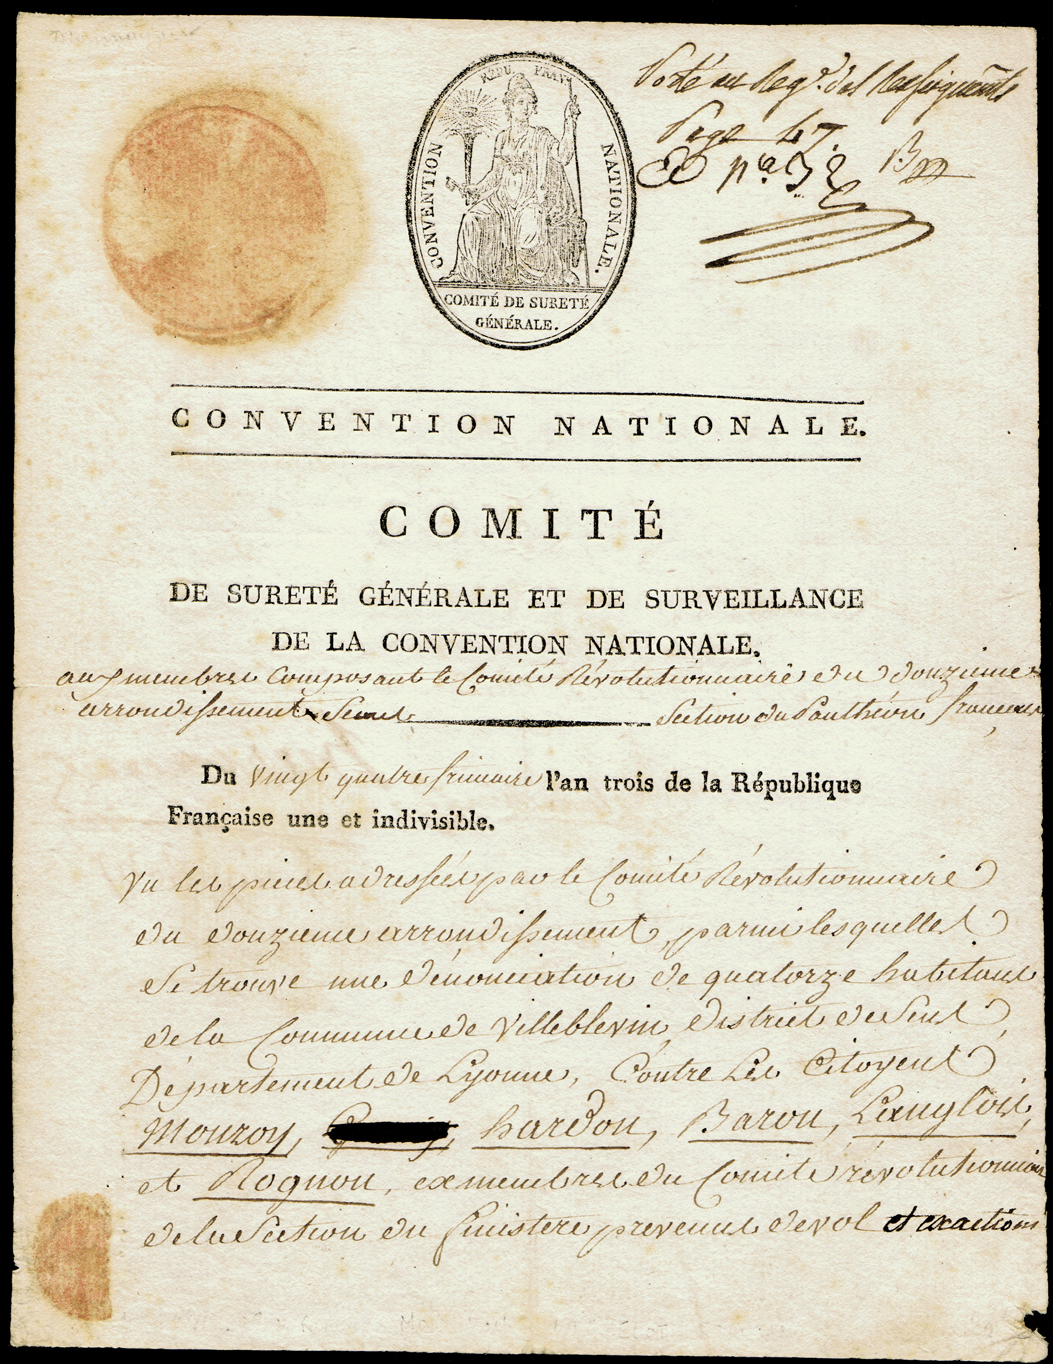 REPU FRANÇ
CONVENTION NATIONALE.
COMITÉ DE SURETÉ
GÉNÉRALE.
Porté au Reg.
Page 47.
n.o 32
CONVENTION NATIONALE.
COMITÉ
DE SURETÉ GÉNÉRALE ET DE SURVEILLANCE
DE LA CONVENTION NATIONALE.
aux membres composant le Comité Révolutionnaire du douzieme
arrondissement Section du Panthéon français
Du vingt quatre frimaire l'an trois de la République
Française une et indivisible.
Vu les pieces adressées par le Comité Révolutionnaire
du douzieme arrondissement, parmi lesquelles
se trouve une dénonciation de quatorze habitans
de la Commune de Villeblevin, district de Sens
Département de Lyonne, Contre Les Citoyens
Monroy, hardon, Baron, Langlois,
et Rognon, ex membres du Comité révolutionnaire
de la Section du finistere prevenus de vol et exactions